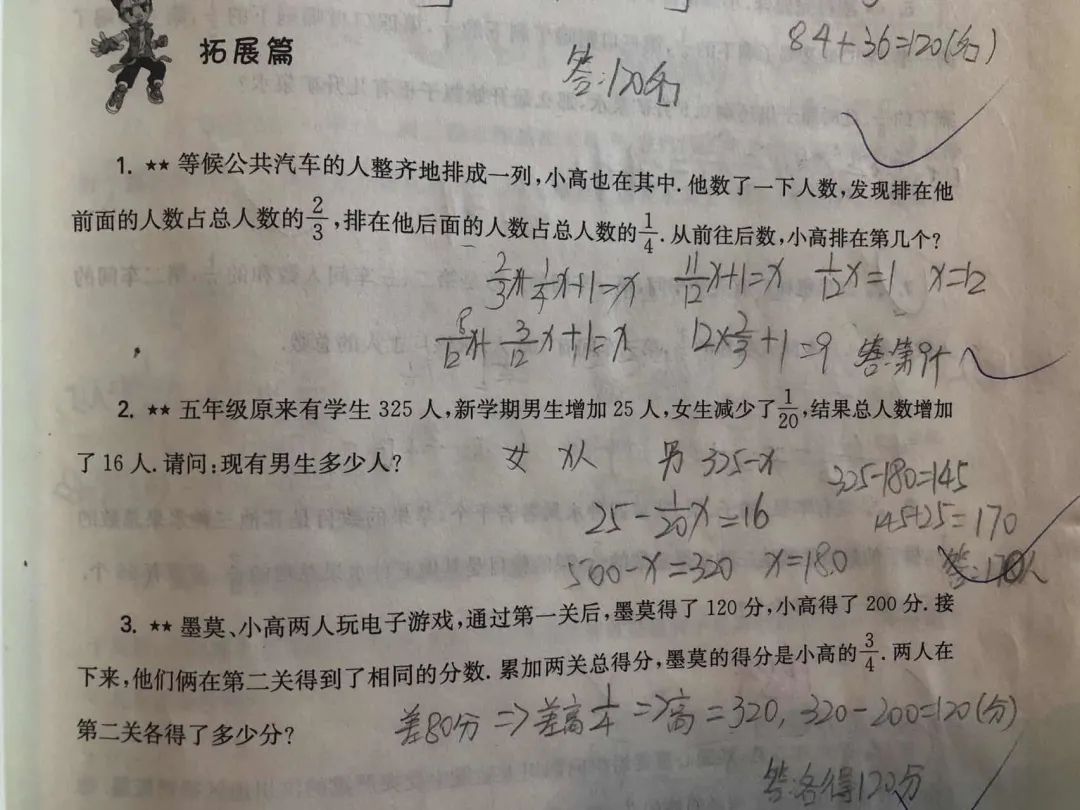 84+36=120(名)
拓展篇
答:120名
1. ★★ 等候公共汽车的人整齐地排成一列,小高也在其中.他数了一下人数,发现排在他
前面的人数占总人数的2/3,排在他后面的人数占总人数的1/4.从前往后数,小高排在第几个?
2/3x+1/4x+1=x 11/12x+1=x 1/12x=1 x=12
8/12x+3/12x+1=x 12×2/3+1=9 答:第9个
2. ★★ 五年级原来有学生 325 人,新学期男生增加 25 人,女生减少了1/20,结果总人数增加
了 16 人.请问:现有男生多少人? 女 x人 男 325-x
325-180=145
25-1/20x=16 145+25=170
500-x=320 x=180 答:170人
3. ★★ 墨莫、小高两人玩电子游戏,通过第一关后,墨莫得了 120 分,小高得了 200 分.接
下来,他们俩在第二关得到了相同的分数.累加两关总得分,墨莫的得分是小高的3/4.两人在
第二关各得了多少分? 差80分=>差高1/4=>高=320, 320-200=120(分)
答:各得120分